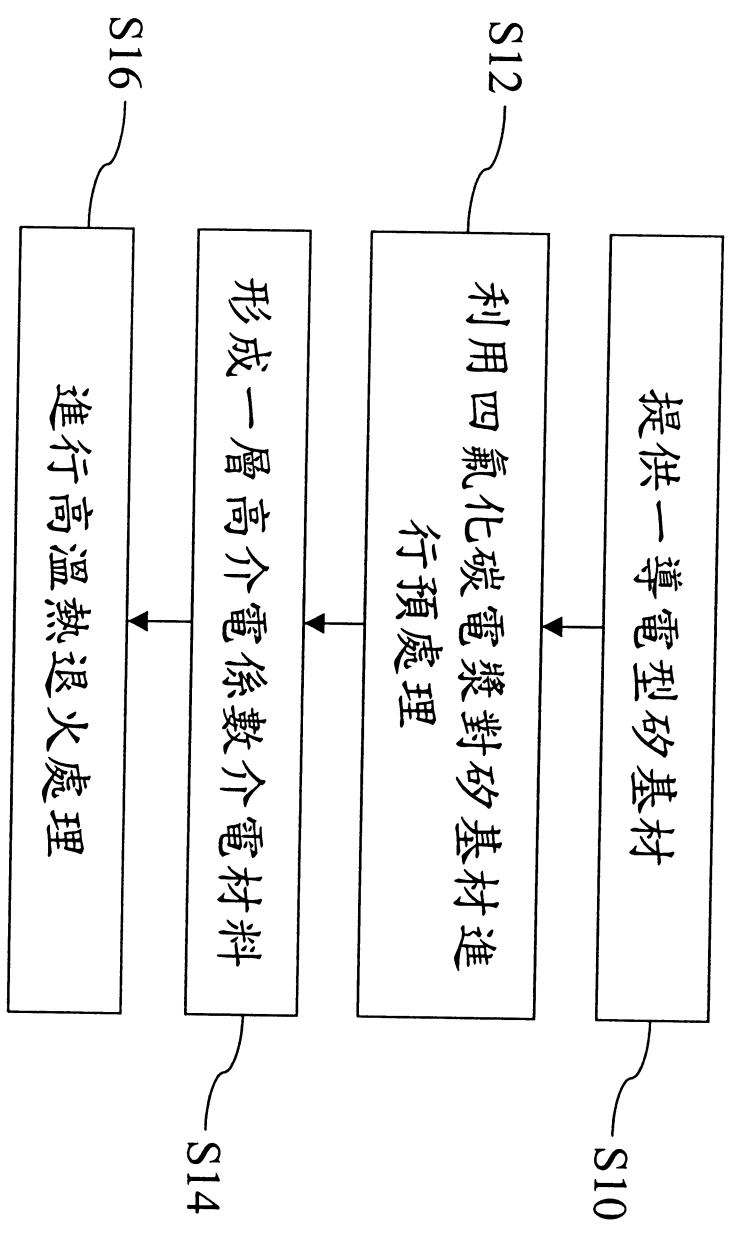 提供一導電型矽基材
S10
S12
利用四氟化碳電漿對矽基材進
行預處理
形成一層高介電係數介電材料
S14
S16
進行高溫熱退火處理